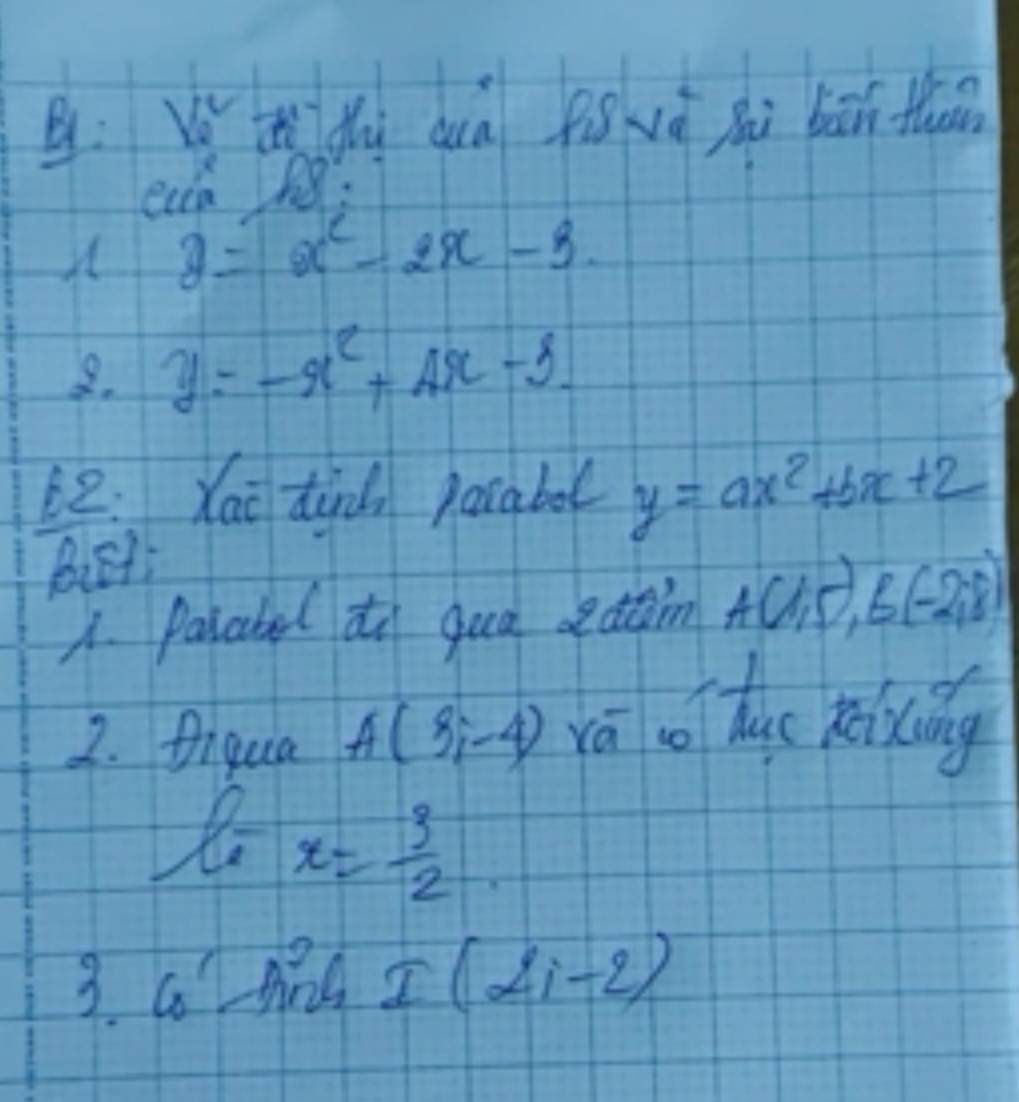 B1: Vẽ đồ thị của hs và sự biến thiên
của hs:
1. y = x² - 2x - 3.
2. y = -x² + 4x - 3.
B2: Xác định Parabol y = ax² + bx + 2
Biết:
1. Parabol đi qua 2 điểm A(1;5), B(-2;8)
2. Đi qua A(3;-4) và có trục đối xứng
là x = 3/2.
3. Có đỉnh I(2;-2)